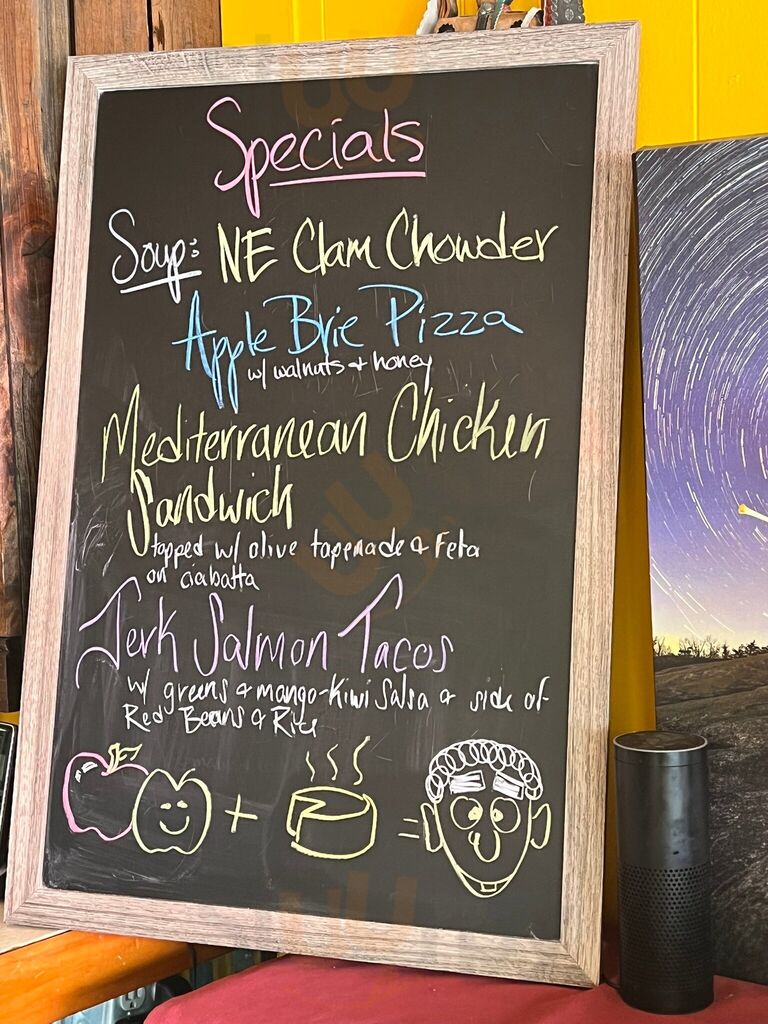 Specials
Soup: NE Clam Chowder
Apple Brie Pizza
w/ walnuts + honey
Mediterranean Chicken
Sandwich
topped w/ olive tapenade & Feta
on ciabatta
Jerk Salmon Tacos
w/ greens & mango-Kiwi Salsa & side of
Red Beans & Rice
+ =